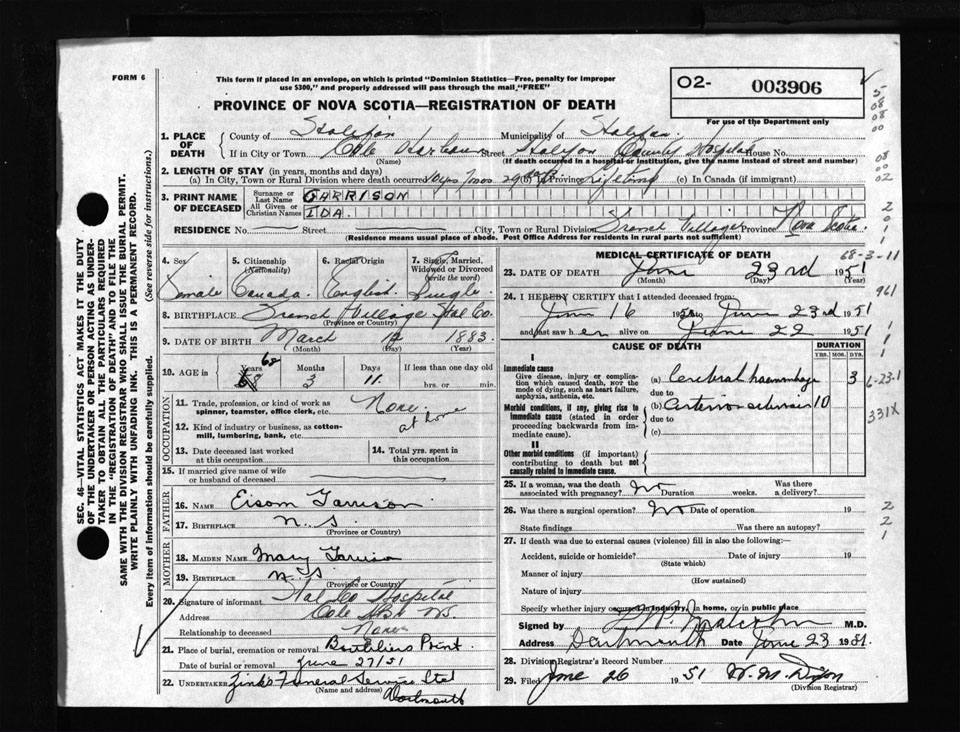 FORM 6
This form if placed in an envelope, on which is printed "Dominion Statistics—Free, penalty for improper
use $300," and properly addressed will pass through the mail "FREE"
O2- 003906
PROVINCE OF NOVA SCOTIA—REGISTRATION OF DEATH
For use of the Department only
SEC. 46—VITAL STATISTICS ACT MAKES IT THE DUTY
OF THE UNDERTAKER OR PERSON ACTING AS UNDER-
TAKER TO OBTAIN ALL THE PARTICULARS REQUIRED
IN THE "REGISTRATION OF DEATH" AND TO FILE THE
SAME WITH THE DIVISION REGISTRAR WHO SHALL ISSUE THE BURIAL PERMIT.
WRITE PLAINLY WITH UNFADING INK. THIS IS A PERMANENT RECORD.
Every item of information should be carefully supplied. (See reverse side for instructions.)
1. PLACE OF DEATH
County of Halifax Municipality of Halifax
If in City or Town Cole Harbour Street Halifax County Hospital House No.
(Name) (If death occurred in a hospital or institution, give the name instead of street and number)
2. LENGTH OF STAY (in years, months and days)
(a) In City, Town or Rural Division where death occurred 29 days (b) Province Lifetime (c) In Canada (if immigrant)
3. PRINT NAME OF DECEASED
Surname or Last Name GARRISON
All Given or Christian Names IDA
RESIDENCE No. Street City, Town or Rural Division French Village Province Nova Scotia
(Residence means usual place of abode. Post Office Address for residents in rural parts not sufficient)
4. Sex 5. Citizenship (Nationality) 6. Racial Origin 7. Single, Married, Widowed or Divorced (write the word)
Female Canada. English. Single
8. BIRTHPLACE French Village Hal Co.
(Province or Country)
9. DATE OF BIRTH March 12 1883
(Month) (Day) (Year)
10. AGE in Years Months Days If less than one day old
68 3 11. hrs. or min.
OCCUPATION
11. Trade, profession, or kind of work as
spinner, teamster, office clerk, etc. None.
12. Kind of industry or business, as cotton-
mill, lumbering, bank, etc. at home
13. Date deceased last worked at this occupation
14. Total yrs. spent in this occupation
15. If married give name of wife
or husband of deceased
FATHER
16. NAME Eisom Garrison
17. BIRTHPLACE N. S.
(Province or Country)
MOTHER
18. MAIDEN NAME Mary Garrison
19. BIRTHPLACE N. S.
(Province or Country)
20. Signature of informant Hal Co Hospital
Address Cole Hbr NS
Relationship to deceased None
21. Place of burial, cremation or removal Boutiliers Point.
Date of burial or removal June 27/51
22. UNDERTAKER Zinks Funeral Service Ltd
(Name and address) Dartmouth
MEDICAL CERTIFICATE OF DEATH
68-3-11
23. DATE OF DEATH June 23rd 1951
(Month) (Day) (Year)
24. I HEREBY CERTIFY that I attended deceased from:
June 16 1951 to June 23rd 1951
and last saw her alive on June 22 1951
961
CAUSE OF DEATH DURATION
YRS. MOS. DYS.
I
Immediate cause
Give disease, injury or complication which caused death, NOT the mode of dying, such as heart failure, asphyxia, asthenia, etc.
(a) Cerebral haemorrhage 3
due to
Morbid conditions, if any, giving rise to immediate cause (stated in order proceeding backwards from immediate cause).
(b) arteriosclerosis 10
due to
(c)
6-23-1
331X
II
Other morbid conditions (if important) contributing to death but not causally related to immediate cause.
25. If a woman, was the death associated with pregnancy? No Duration weeks. Was there a delivery?
26. Was there a surgical operation? No Date of operation 19
State findings Was there an autopsy?
27. If death was due to external causes (violence) fill in also the following:—
Accident, suicide or homicide? Date of injury 19
(State which)
Manner of injury
(How sustained)
Nature of injury
Specify whether injury occurred in industry, in home, or in public place
Signed by Malcolm M.D.
Address Dartmouth Date June 23 1951.
28. Division Registrar's Record Number
29. Filed June 26 1951 W. M. Dixon
(Division Registrar)